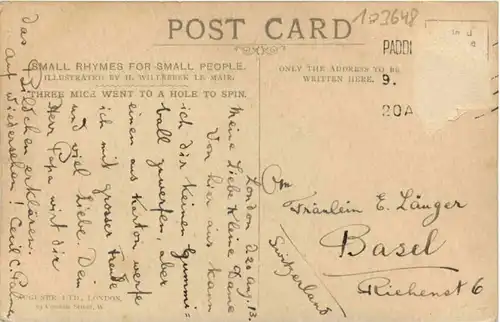 POST CARD
123648
PADDI
9.
20A
SMALL RHYMES FOR SMALL PEOPLE.
ILLUSTRATED BY H. WILLEBEEK LE MAIR.
THREE MICE WENT TO A HOLE TO SPIN.
ONLY THE ADDRESS TO BE
WRITTEN HERE.
London d. 20 Aug. 13.
Meine Liebe Kleine Dame
Von hier aus kann
ich dir keinen Gummi-
ball zuwerfen, aber
einen aus Karton werfe
ich mit grosser Freude
und viel Liebe. Dein
Herr Papa wird dir
das Bildchen erklären.
auf wiedersehen! Cecil C.
An
Fräulein E. Länger
Basel
Richenst 6
Switzerland
AUGENER LTD., LONDON.